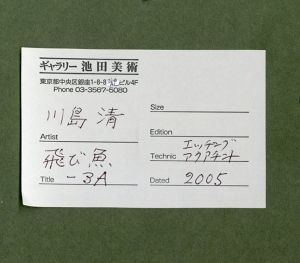 ギャラリー 池田美術
東京都中央区銀座1-8-8 ビル4F
Phone 03-3567-5080
川島 清
Artist
飛び魚
Title －3A
Size
Edition
エッチング
Technic アクアチント
Dated 2005